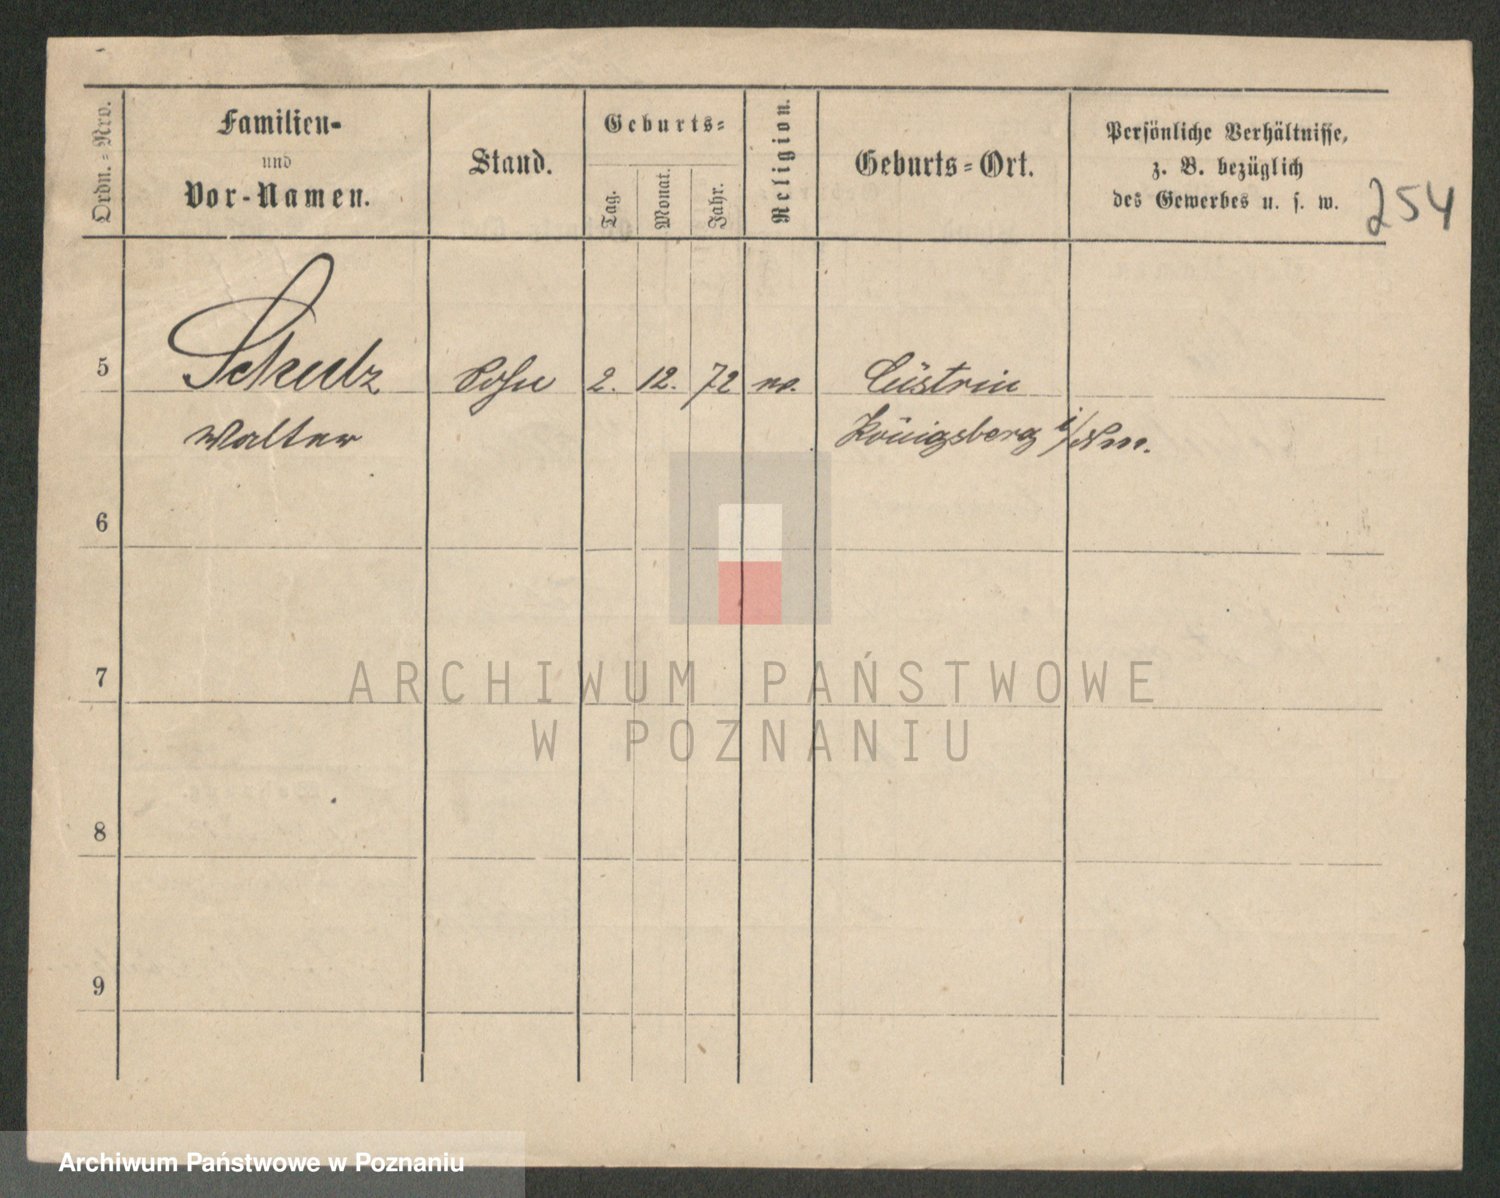 Ordn.=Nro.
Familien-
und
Vor-Namen.
Stand.
Geburts=
Tag.
Monat.
Jahr.
Religion.
Geburts=Ort.
Persönliche Verhältnisse,
z. B. bezüglich
des Gewerbes u. s. w.
254
5 Schulz Sohn 2. 12. 72 Cüstrin
Walter Königsberg i/Nm.
6
7
8
9
ARCHIWUM PAŃSTWOWE
W POZNANIU
Archiwum Państwowe w Poznaniu